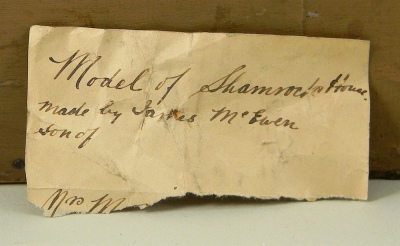 Model of Shamrock House.
made by James McEwen
son of
Mrs M